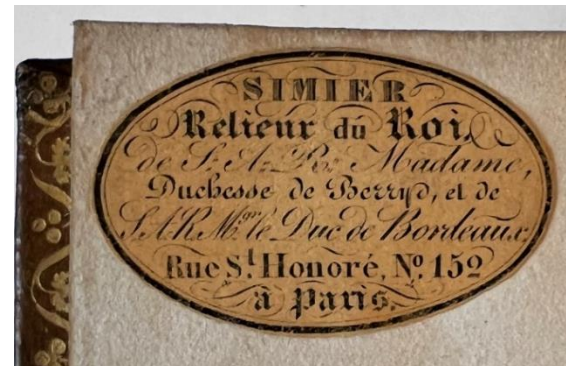 SIMIER
Relieur du Roi,
de S. A. R. Madame,
Duchesse de Berry, et de
S.A.R. Mgr. le Duc de Bordeaux.
Rue St. Honoré, No. 152
à Paris.